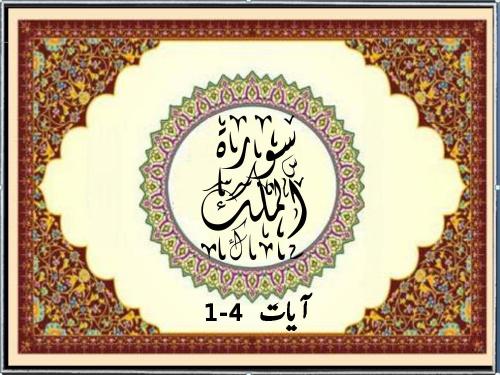 سورة
الملك
آيات 4-1